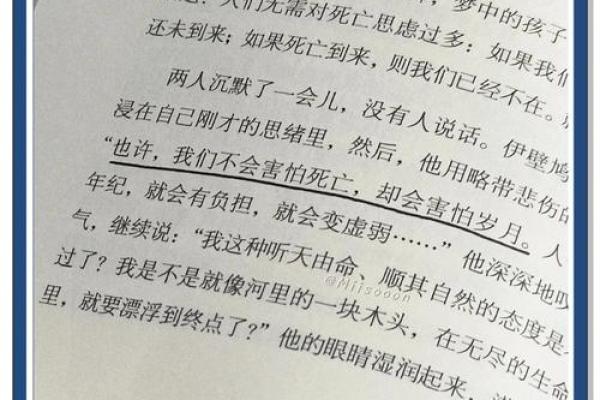 梦中的孩子
人们无需对死亡思虑过多：如果我们
还未到来；如果死亡到来，则我们已经不在。
两人沉默了一会儿，没有人说话。伊壁鸠
浸在自己刚才的思绪里，然后，他用略带悲伤的
“也许，我们不会害怕死亡，却会害怕岁月。人
年纪，就会有负担，就会变虚弱……”他深深地叹
气，继续说：“我这种听天由命、顺其自然的态度是
@Miisooon
过了？我是不是就像河里的一块木头，在无尽的生命
里，就要漂浮到终点了？”他的眼睛湿润起来，